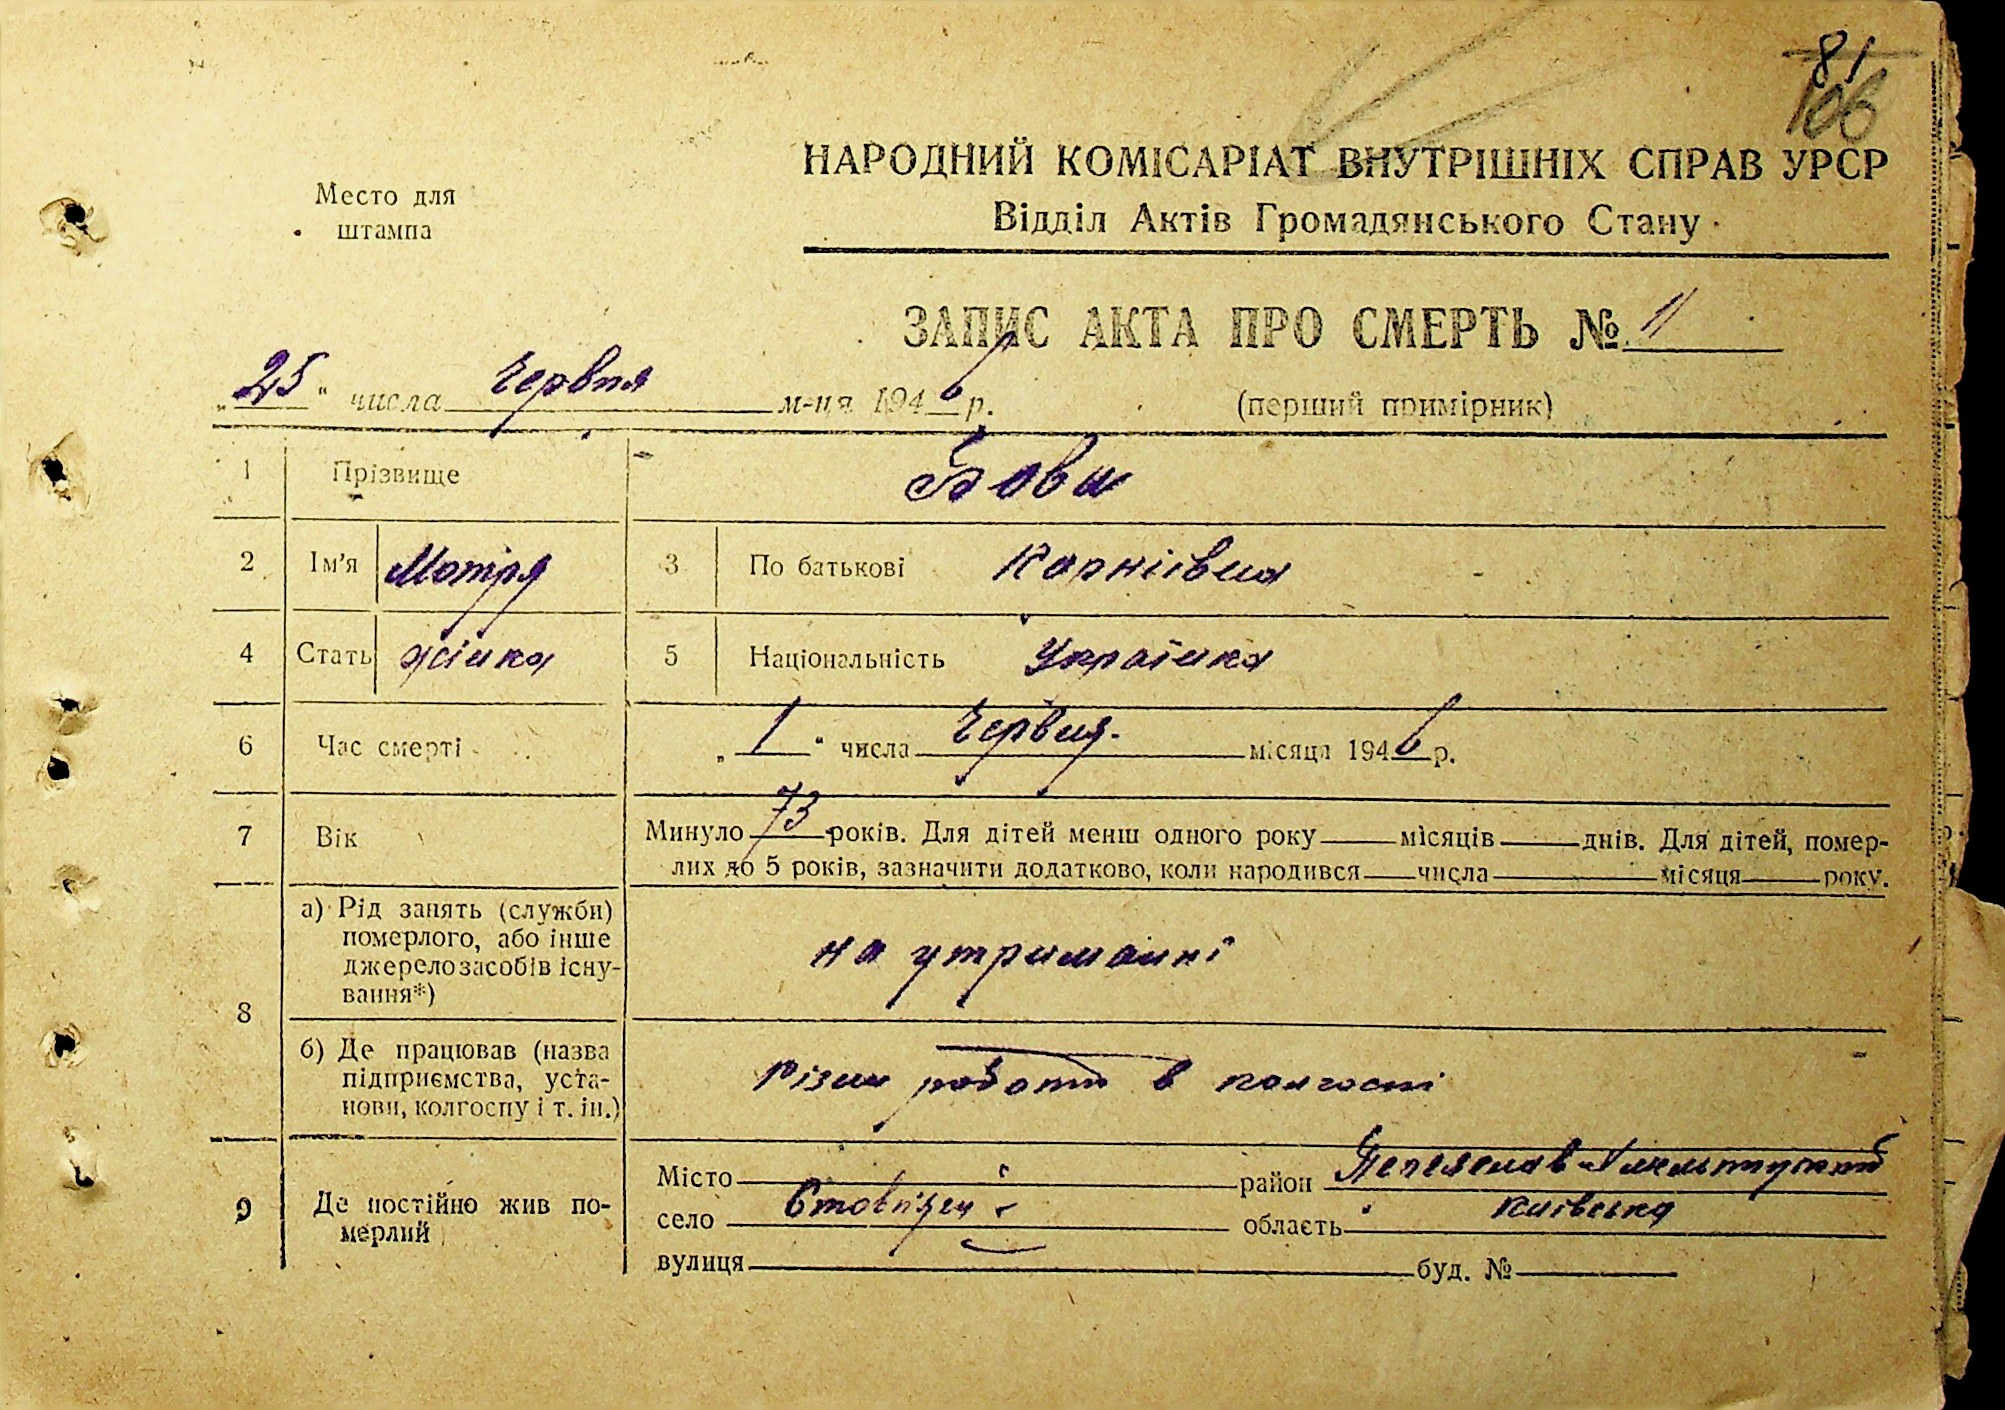 81
106
Место для
штампа
НАРОДНИЙ КОМІСАРІАТ ВНУТРІШНІХ СПРАВ УРСР
Відділ Актів Громадянського Стану
ЗАПИС АКТА ПРО СМЕРТЬ № 11
„25“ числа Червня м-ця 1946 р. (перший примірник)
1 Прізвище Бова
2 Ім'я Мотря 3 По батькові Корніївна
4 Стать жінка 5 Національність Українка
6 Час смерті „1“ числа Червня місяця 1946 р.
7 Вік Минуло 73 років. Для дітей менш одного року місяців днів. Для дітей, помер-
лих до 5 років, зазначити додатково, коли народився числа місяця року.
8 а) Рід занять (служби)
померлого, або інше
джерело засобів існу-
вання*)
на утриманні
б) Де працював (назва
підприємства, уста-
нови, колгоспу і т. ін.)
різни роботи в колгоспі
9 Де постійно жив по-
мерлий
Місто район Переяслав-Хмельницький
село Стовп'яги область Київська
вулиця буд. №